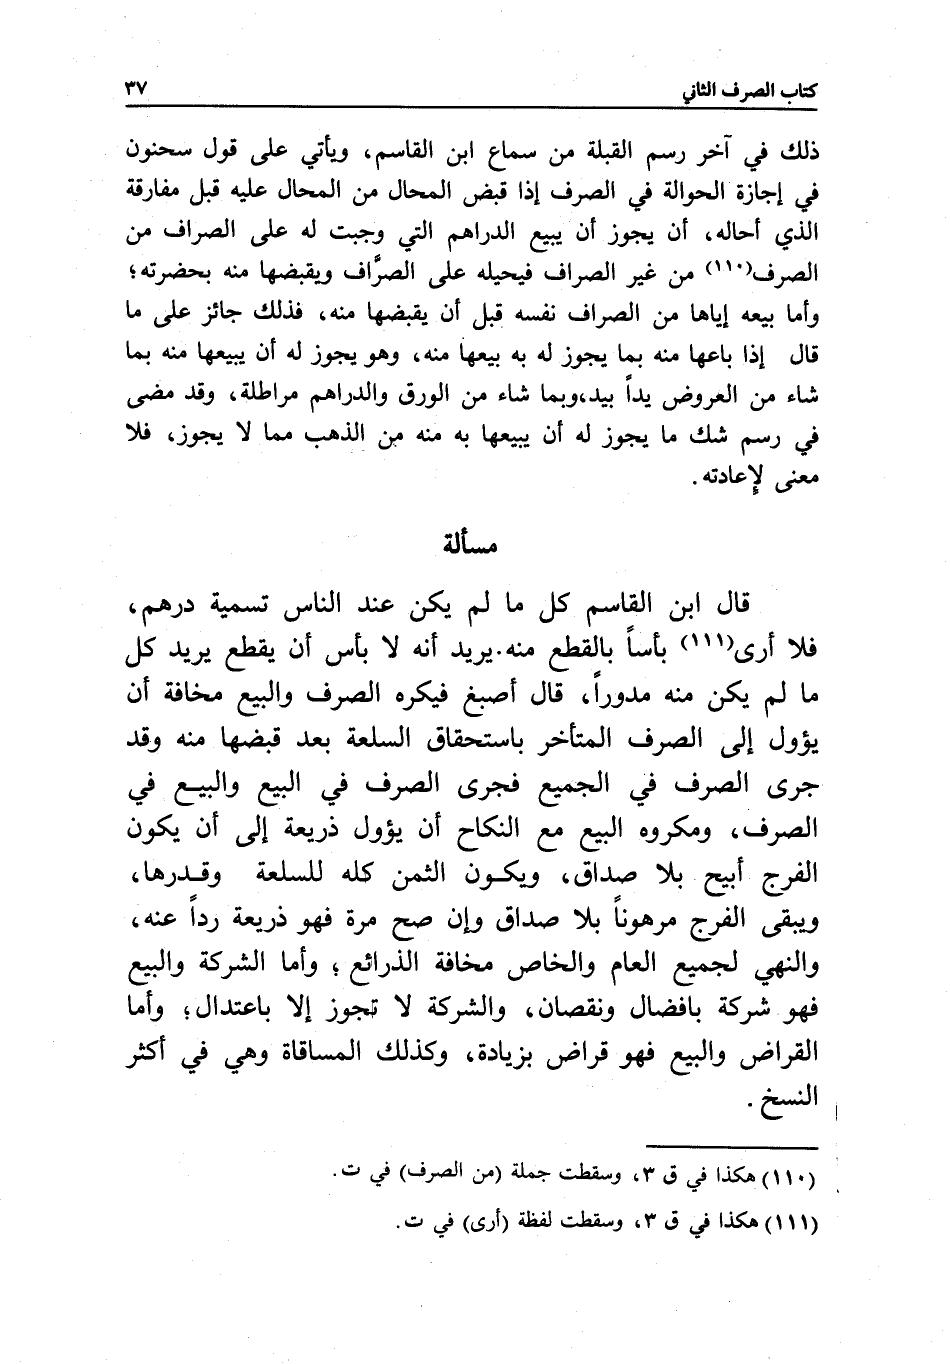 كتاب الصرف الثاني ٣٧
ذلك في آخر رسم القبلة من سماع ابن القاسم، ويأتي على قول سحنون
في إجازة الحوالة في الصرف إذا قبض المحال من المحال عليه قبل مفارقة
الذي أحاله، أن يجوز أن يبيع الدراهم التي وجبت له على الصراف من
الصرف(١١٠) من غير الصراف فيحيله على الصرَّاف ويقبضها منه بحضرته؛
وأما بيعه إياها من الصراف نفسه قبل أن يقبضها منه، فذلك جائز على ما
قال إذا باعها منه بما يجوز له به بيعها منه، وهو يجوز له أن يبيعها منه بما
شاء من العروض يداً بيد،وبما شاء من الورق والدراهم مراطلة، وقد مضى
في رسم شك ما يجوز له أن يبيعها به منه من الذهب مما لا يجوز، فلا
معنى لإعادته.
مسألة
قال ابن القاسم كل ما لم يكن عند الناس تسمية درهم،
فلا أرى(١١١) بأساً بالقطع منه.يريد أنه لا بأس أن يقطع يريد كل
ما لم يكن منه مدوراً، قال أصبغ فيكره الصرف والبيع مخافة أن
يؤول إلى الصرف المتأخر باستحقاق السلعة بعد قبضها منه وقد
جرى الصرف في الجميع فجرى الصرف في البيع والبيع في
الصرف، ومكروه البيع مع النكاح أن يؤول ذريعة إلى أن يكون
الفرج أبيح بلا صداق، ويكون الثمن كله للسلعة وقدرها،
ويبقى الفرج مرهوناً بلا صداق وإن صح مرة فهو ذريعة رداً عنه،
والنهي لجميع العام والخاص مخافة الذرائع؛ وأما الشركة والبيع
فهو شركة بافضال ونقصان، والشركة لا تجوز إلا باعتدال؛ وأما
القراض والبيع فهو قراض بزيادة، وكذلك المساقاة وهي في أكثر
النسخ.
(١١٠) هكذا في ق ٣، وسقطت جملة (من الصرف) في ت.
(١١١) هكذا في ق ٣، وسقطت لفظة (أرى) في ت.